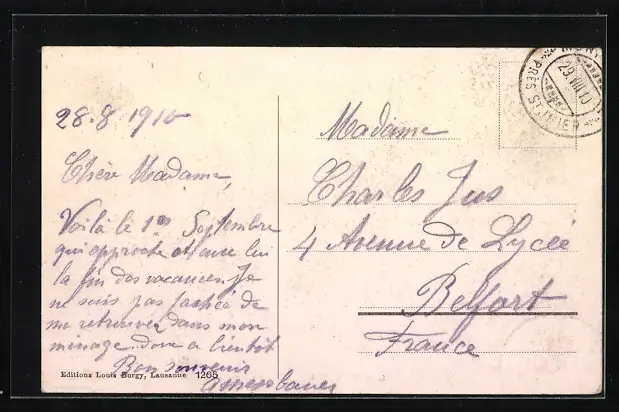 28.8 1910
Chère Madame,
Voilà le 1er Septembre
qui approche et avec lui
la fin des vacances. Je
ne suis pas fachée de
me retrouver dans mon
ménage. donc a bientôt
Bon souvenir
Editions Louis Burgy, Lausanne 1265
Madame
Charles Jus
4 Avenue de Lycée
Belfort
France
PRÈS ST. IMIER
29.VIII.10